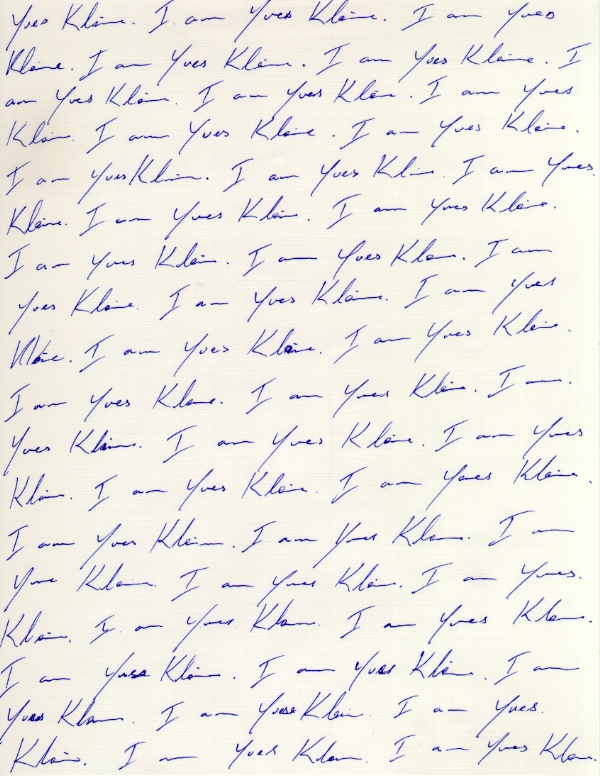 Yves Klein. I am Yves Klein. I am Yves
Klein. I am Yves Klein. I am Yves Klein. I
am Yves Klein. I am Yves Klein. I am Yves
Klein. I am Yves Klein. I am Yves Klein.
I am Yves Klein. I am Yves Klein. I am Yves.
Klein. I am Yves Klein. I am Yves Klein.
I am Yves Klein. I am Yves Klein. I am
Yves Klein. I am Yves Klein. I am Yves
Klein. I am Yves Klein. I am Yves Klein.
I am Yves Klein. I am Yves Klein. I am.
Yves Klein. I am Yves Klein. I am Yves
Klein. I am Yves Klein. I am Yves Klein.
I am Yves Klein. I am Yves Klein. I am
Yves Klein. I am Yves Klein. I am Yves.
Klein. I am Yves Klein. I am Yves Klein.
I am Yves Klein. I am Yves Klein. I am
Yves Klein. I am Yves Klein. I am Yves.
Klein. I am Yves Klein. I am Yves Klein.